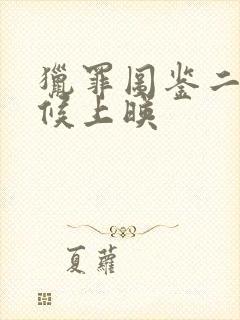 獵罪圖鉴二
候上映
夏蘿